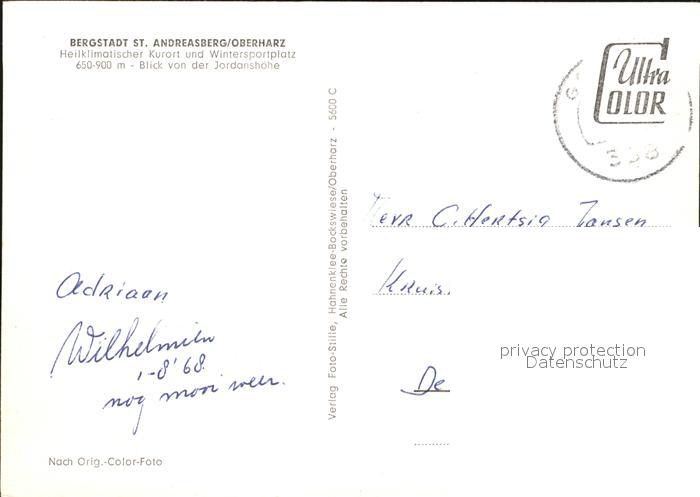 BERGSTADT ST. ANDREASBERG/OBERHARZ
Heilklimatischer Kurort und Wintersportplatz
650-900 m - Blick von der Jordanshöhe
Ultra
COLOR
338
Verlag Foto-Stille, Hahnenklee-Bockswiese/Oberharz - 5600 C
Alle Rechte vorbehalten
Herr C. Hertsig Jansen
Kruis.
De
Adriaan
Wilhelmien
1-8'68.
nog mooi weer.
privacy protection
Datenschutz
Nach Orig.-Color-Foto